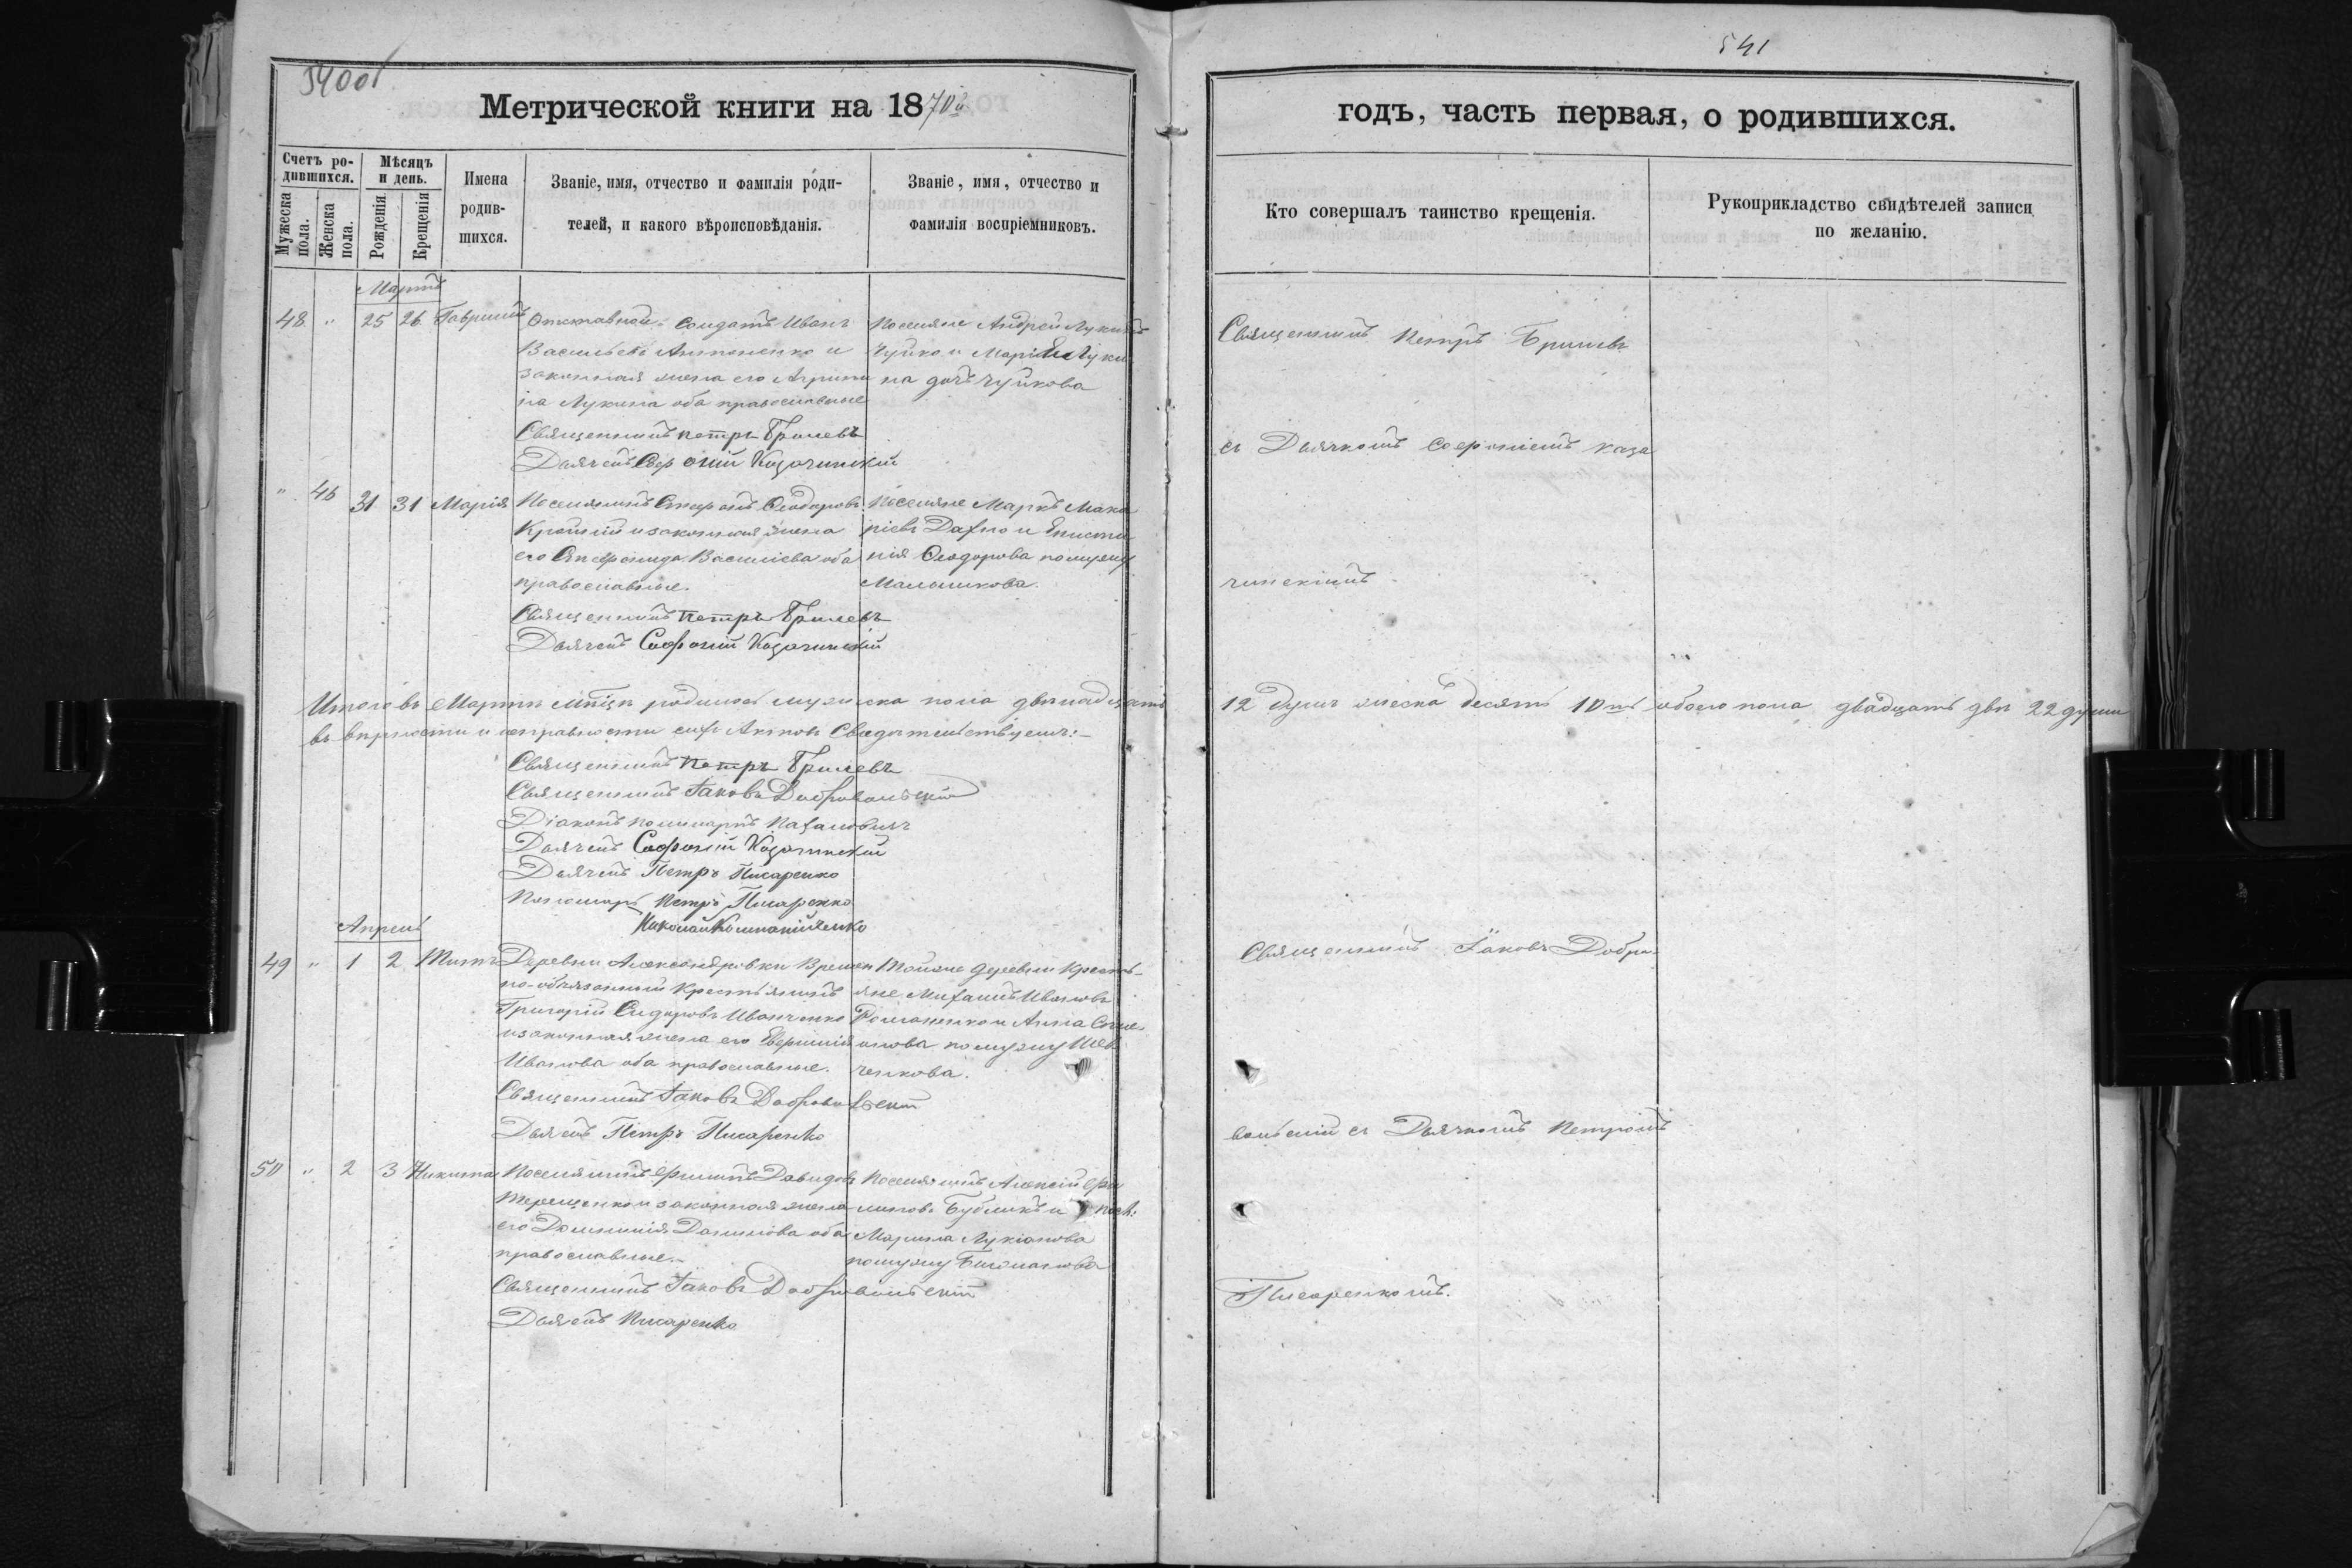 540об
541
Метрической книги на 1870й
годъ, часть первая, о родившихся.
Счетъ родившихся.
Мѣсяцъ и день.
Мужеска пола.
Женска пола.
Рожденія.
Крещенія
Имена родив-
шихся.
Званіе, имя, отчество и фамилія роди-
телей, и какого вѣроисповѣданія.
Званіе, имя, отчество и
фамилія воспріемниковъ.
Кто совершалъ таинство крещенія.
Рукоприкладство свидѣтелей записи
по желанію.
Мартъ
48 " 25 26 Гавріилъ
Отставной Солдатъ Иванъ
Васильевъ Антоненко и
законная жена его Агрипи
на Лукина оба православные
Священникъ Петръ Грилевъ
Дьячекъ Софроній Козачинскій
Поселяне Андрей Лукинъ
Чуйко и Марія Луки
на дочь Чуйкова
Священникъ Петръ
съ Дьячкомъ Софроніемъ Каза
чинскимъ
" 46 31 31 Марія
Поселянинъ Стефанъ Ѳеодоровъ
и законная жена
его Степанида Василіева оба
православные.
Священникъ Петръ Грилевъ
Дьячекъ Софроній Козачинскій
Поселяне Маркъ Мака
ріевъ Дахно и Еписти
мія Ѳеодорова по мужу
Малышкова.
Итого въ Мартѣ мѣсяцѣ родилось мужеска пола двѣнадцать
12 Душъ женска десять 10ть обоего пола двадцать двѣ 22 души
въ вѣрности и исправности сихъ Актовъ Свидѣтельствуемъ:-
Священникъ Петръ Грилевъ
Священникъ Іаковъ Добровольскій
Діаконъ
Дьячекъ Софроній Козачинскій
Дьячекъ Петръ Писаренко
Пономарь Петръ Писаренко
Николай Компаніиченко
Апрель
49 " 1 2 Титъ
Деревни Александровки Времен
но-обязанный Крестьянинъ
Григорій Сидоровъ Иванченко
и законная жена его
Иванова оба православные.
Священникъ Іаковъ Добровольскій
Дьячекъ Петръ Писаренко
Тойже деревни Кресть-
яне Михаилъ Ивановъ
Романенко и Анна Симе
онова по мужу Шев
ченкова.
Священникъ Іаковъ Добро-
вольскій съ Дьячкомъ Петромъ
Писаренкомъ.
50 " 2 3 Никита
Поселянинъ Филипъ Давидовъ
Терещенко и законная жена
его Домникія Данилова оба
православные.
Священникъ Іаковъ Добровольскій
Дьячекъ Писаренко
Поселянинъ Алексій Фи
липовъ Бубликъ и посел:
Марина Лукіанова
по мужу